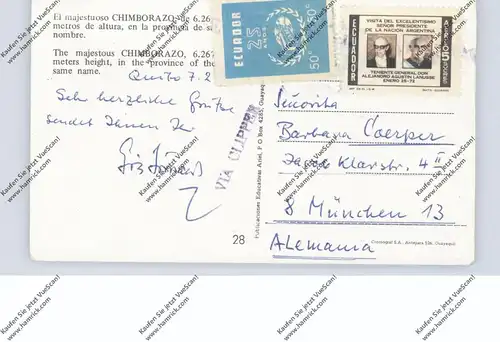 El majestuoso CHIMBORAZO, de 6.267
metros de altura, en la provincia de su
nombre.
The majestous CHIMBORAZO, 6.267
meters height, in the province of the
same name.
Quito 7.2
Sehr herzliche Grüße
sendet Ihnen Ihr
VIA CLIPPER
28
Publicaciones Educativas Ariel, P O Box 4285, Guayaquil
ECUADOR
25
50c
ECUADOR
VISITA DEL EXCELENTISIMO
SEÑOR PRESIDENTE
DE LA NACION ARGENTINA
AEREO 5
TENIENTE GENERAL DON
ALEJANDRO AGUSTIN LANUSSE
ENERO 25-72
Señorita
Barbara Caesper
Klarstr. 4 II
8 München 13
Alemania
Kaufen Sie jetzt VueScan!
www.hamrick.com